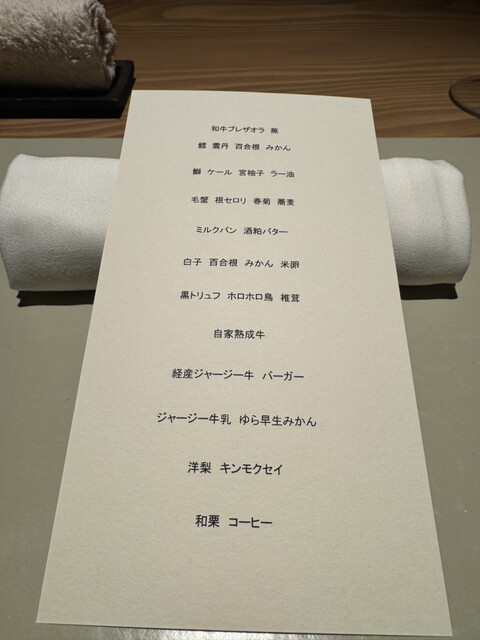 和牛ブレザオラ 蕪
鱈 雲丹 百合根 みかん
鰤 ケール 宮柚子 ラー油
毛蟹 根セロリ 春菊 蕎麦
ミルクパン 酒粕バター
白子 百合根 みかん 米卵
黒トリュフ ホロホロ鳥 椎茸
自家熟成牛
経産ジャージー牛 バーガー
ジャージー牛乳 ゆら早生みかん
洋梨 キンモクセイ
和栗 コーヒー